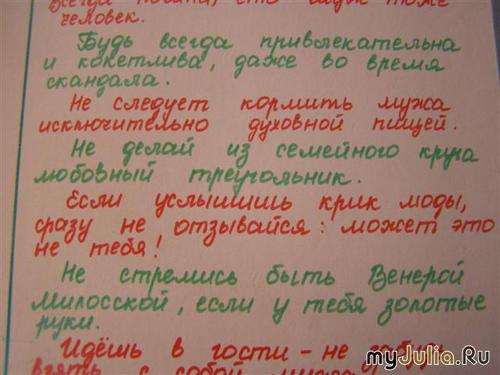 всегда помни, что муж тоже
человек.
Будь всегда привлекательна
и кокетлива, даже во время
скандала.
Не следует кормить мужа
исключительно духовной пищей.
Не делай из семейного круга
любовный треугольник.
Если услышишь крик моды,
сразу не отзывайся: может это
не тебя!
Не стремись быть Венерой
Милосской, если у тебя золотые
руки.
Идёшь в гости - не забудь
взять с собой мужа
myJulia.Ru